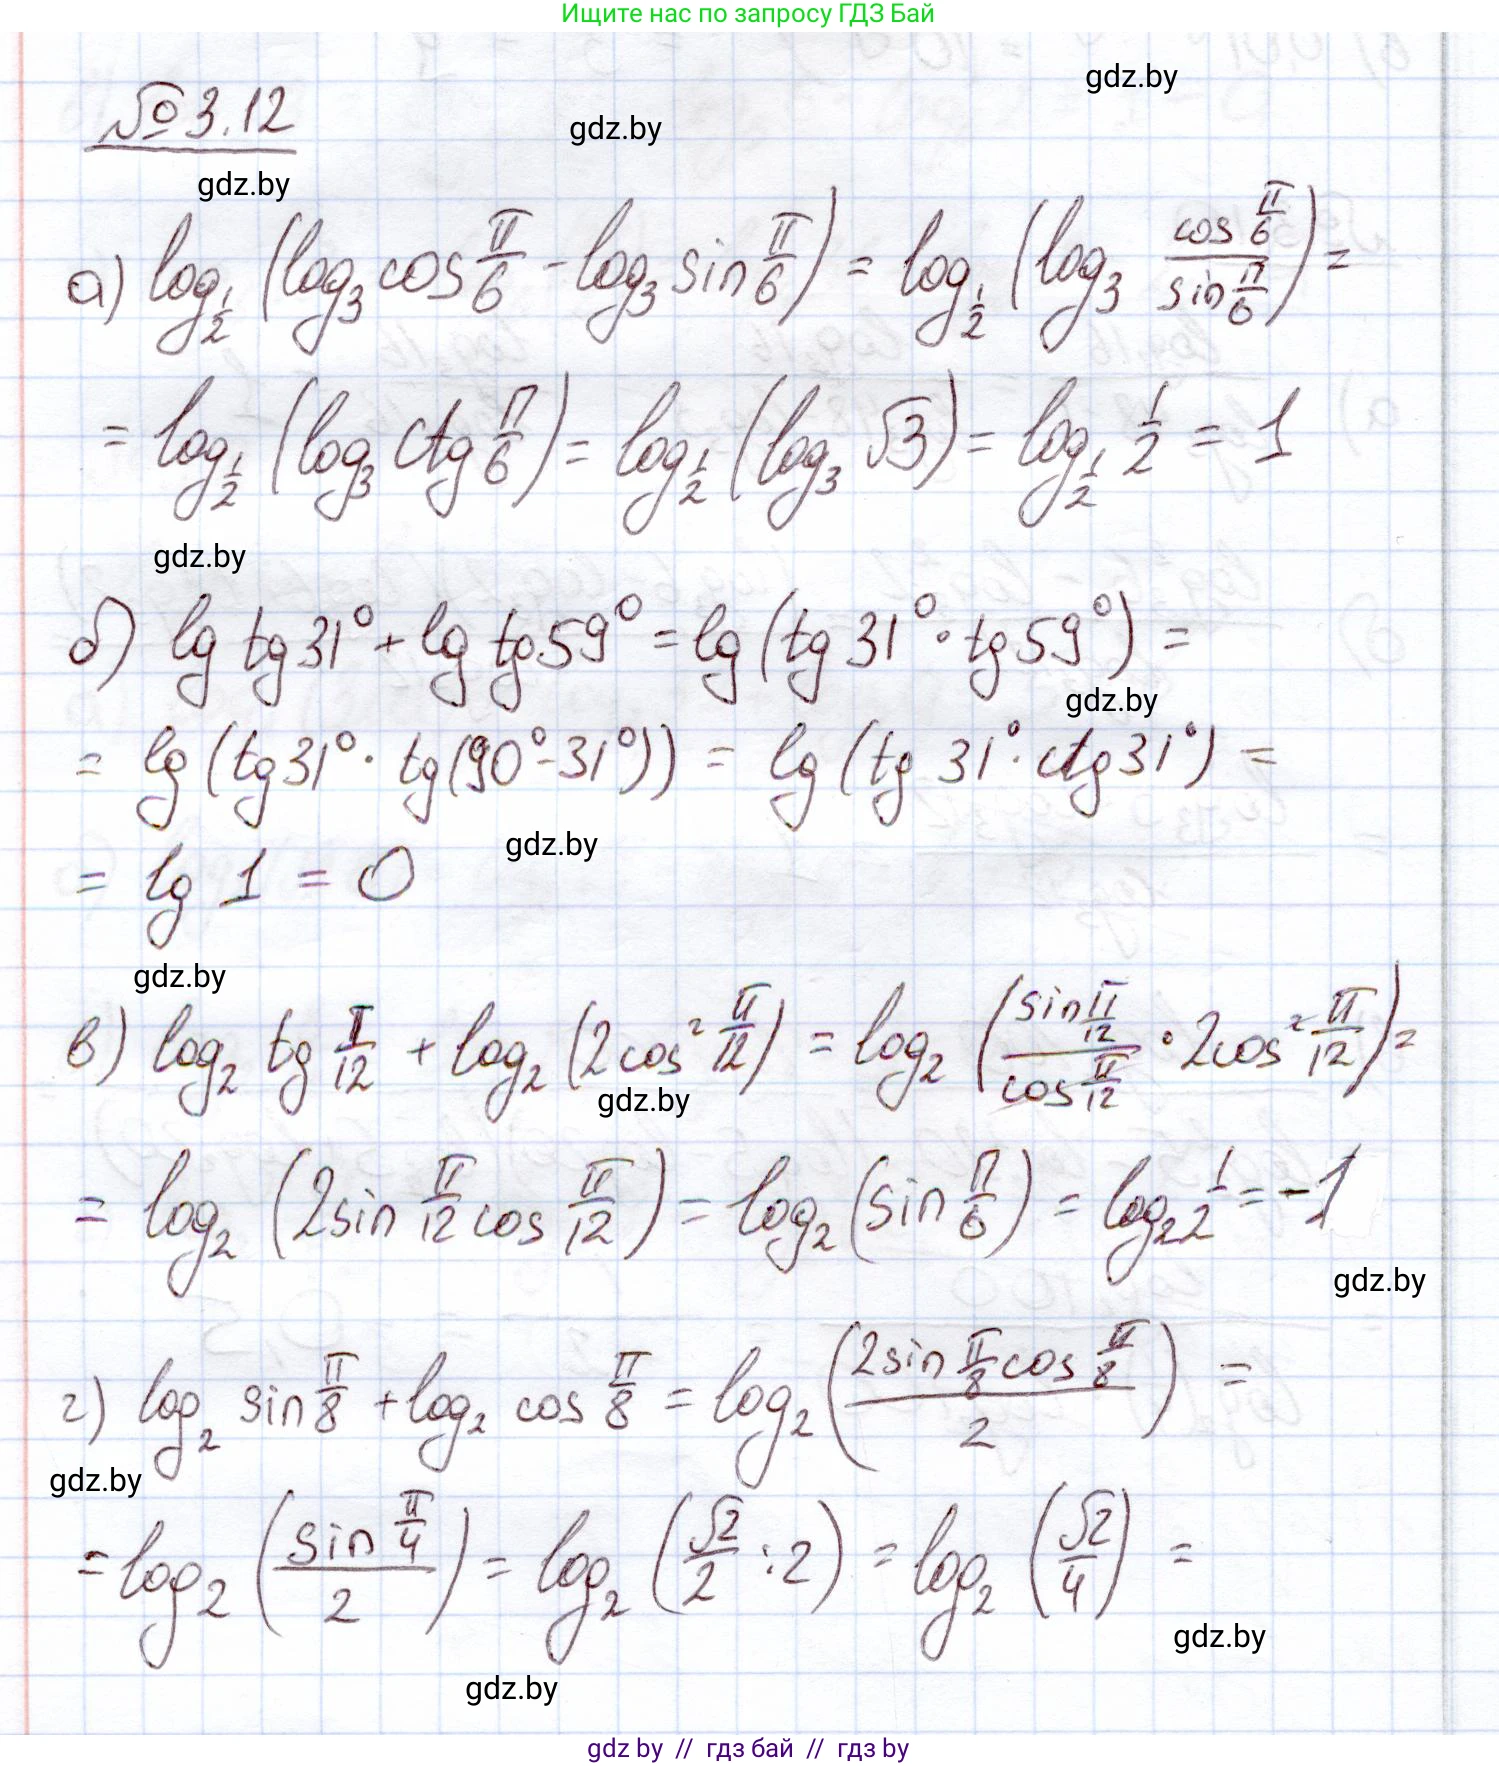 Ищите нас по запросу ГДЗ Бай
gdz.by
№ 3.12
gdz.by
gdz.by
а) log_{1/2} (log_3 cos π/6 - log_3 sin π/6) = log_{1/2} (log_3 (cos π/6)/(sin π/6)) =
= log_{1/2} (log_3 ctg π/6) = log_{1/2} (log_3 √3) = log_{1/2} 1/2 = 1
gdz.by
б) lg tg 31° + lg tg 59° = lg (tg 31° · tg 59°) =
gdz.by
= lg (tg 31° · tg (90° - 31°)) = lg (tg 31° · ctg 31°) =
gdz.by
= lg 1 = 0
gdz.by
в) log_2 tg π/12 + log_2 (2cos² π/12) = log_2 ((sin π/12)/(cos π/12) · 2cos² π/12) =
gdz.by
= log_2 (2sin π/12 cos π/12) = log_2 (sin π/6) = log_2 1/2 = -1
gdz.by
г) log_2 sin π/8 + log_2 cos π/8 = log_2 ((2sin π/8 cos π/8)/2) =
gdz.by
= log_2 ((sin π/4)/2) = log_2 (√2/2 : 2) = log_2 (√2/4) =
gdz.by
gdz.by
gdz by // гдз бай // гдз by